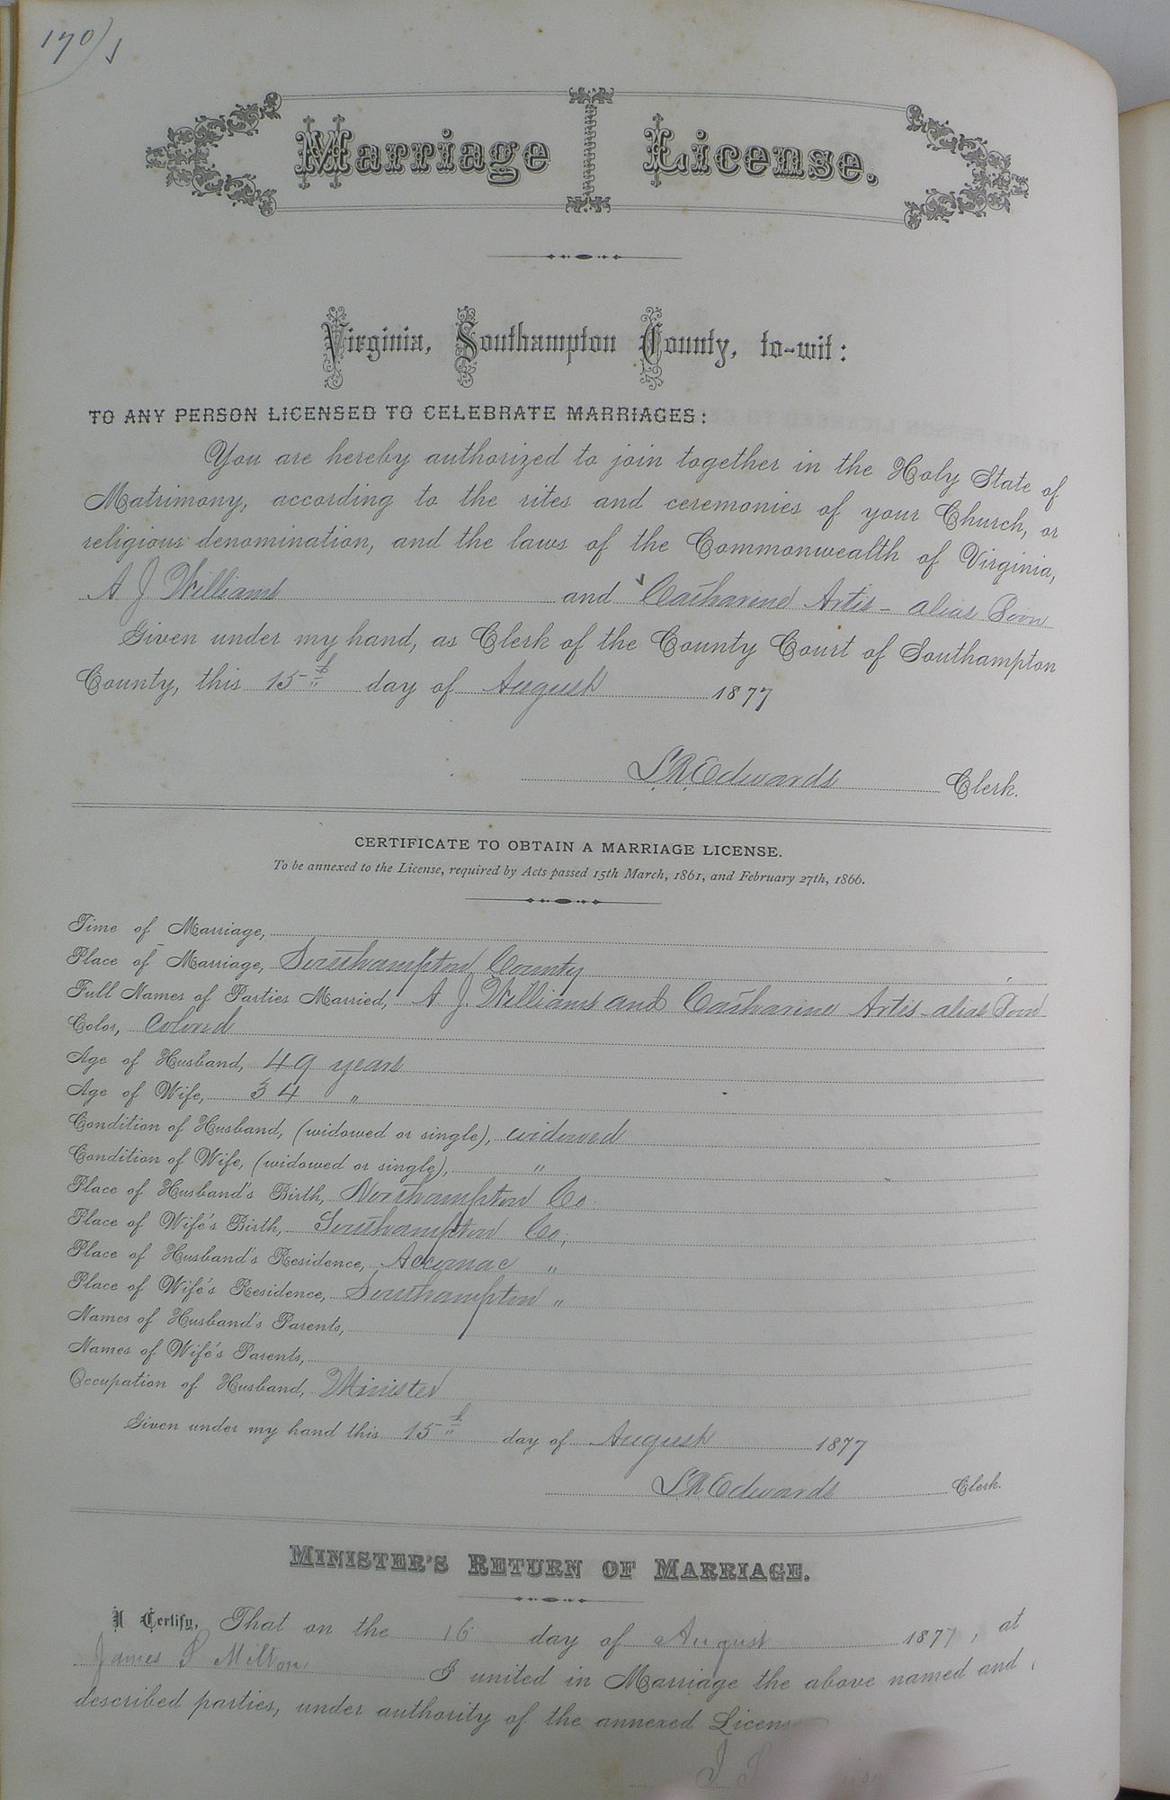 170
Marriage License.
Virginia, Southampton County, to-wit:
TO ANY PERSON LICENSED TO CELEBRATE MARRIAGES:
You are hereby authorized to join together in the Holy State of
Matrimony, according to the rites and ceremonies of your Church, or
religious denomination, and the laws of the Commonwealth of Virginia,
A J Williams and Catharine Artis - alias
Given under my hand, as Clerk of the County Court of Southampton
County, this 15th day of August 1877
L.R. Edwards Clerk.
CERTIFICATE TO OBTAIN A MARRIAGE LICENSE.
To be annexed to the License, required by Acts passed 15th March, 1861, and February 27th, 1866.
Time of Marriage,
Place of Marriage, Southampton County
Full Names of Parties Married, A J. Williams and Catharine Artis - alias
Color, Colored
Age of Husband, 49 years
Age of Wife, 34 "
Condition of Husband, (widowed or single), widowed
Condition of Wife, (widowed or single), "
Place of Husband's Birth, Northampton Co
Place of Wife's Birth, Southampton Co,
Place of Husband's Residence, Accomac "
Place of Wife's Residence, Southampton "
Names of Husband's Parents,
Names of Wife's Parents,
Occupation of Husband, Minister
Given under my hand this 15th day of August 1877
L.R. Edwards Clerk.
MINISTER'S RETURN OF MARRIAGE.
I Certify, That on the 16 day of August 1877, at
James S Milton I united in Marriage the above named and
described parties, under authority of the annexed Licens